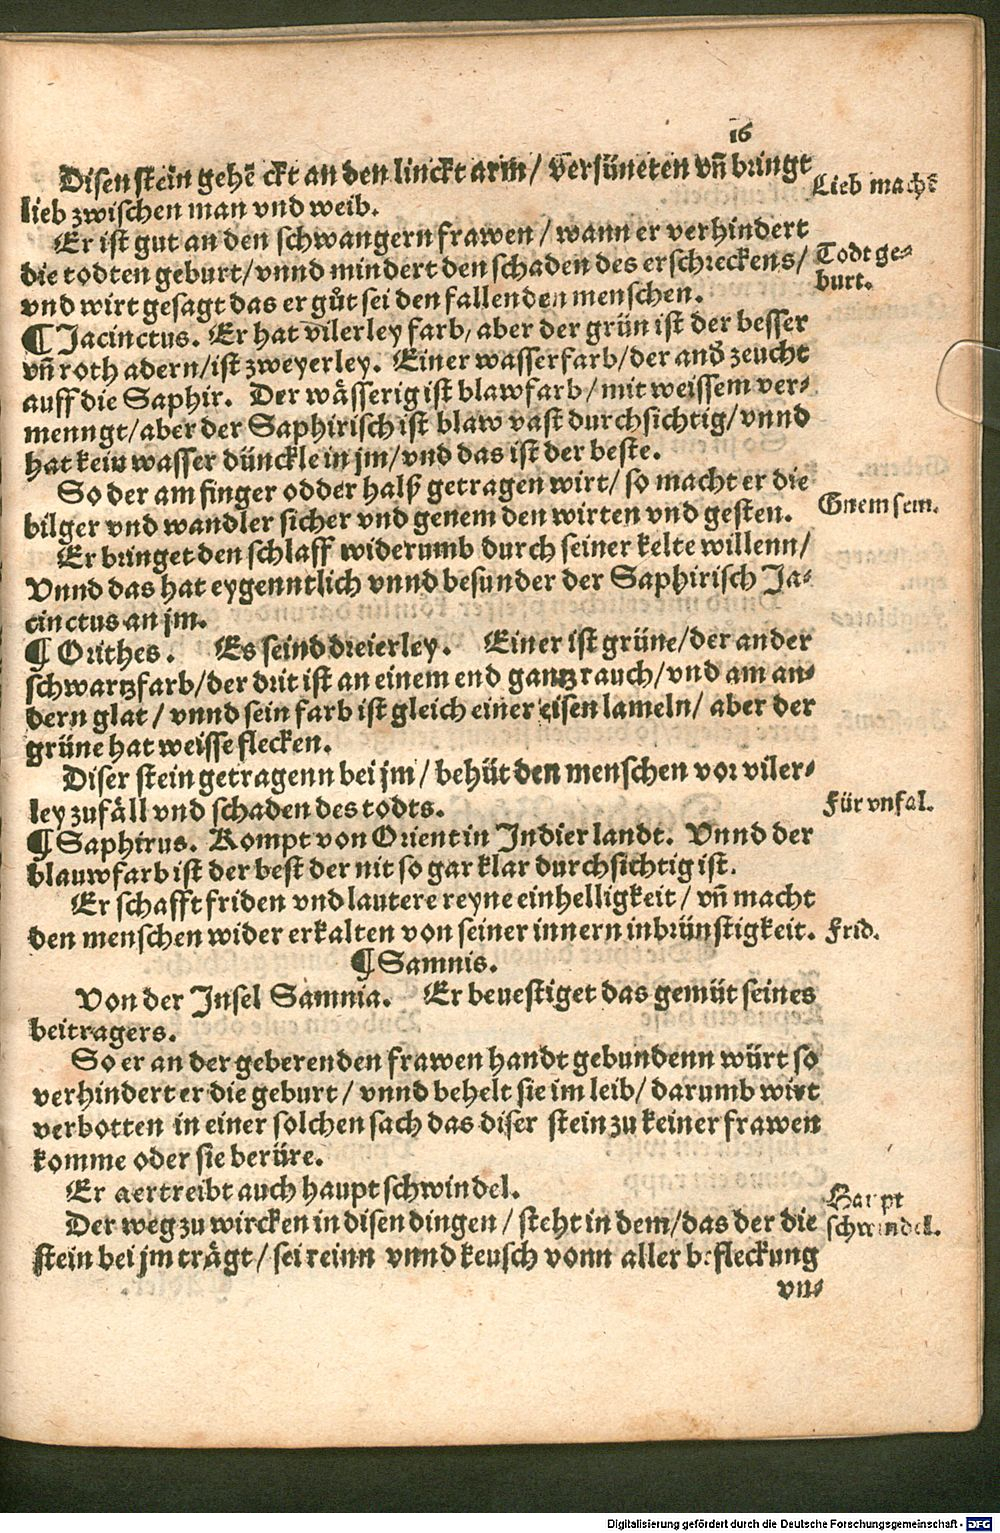 16
Disen stein gehẽckt an den linckt arm / versüneten vñ bringt
Lieb machẽ
lieb zwischen man vnd weib.
Er ist gut an den schwangern frawen / wann er verhindert
die todten geburt / vnnd mindert den schaden des erschreckens /
Todt ge⸗
burt.
vnd wirt gesagt das er gůt sei den fallenden menschen.
¶ Jacinctus. Er hat vilerley farb, aber der grün ist der besser
vñ roth adern / ist zweyerley. Einer wasserfarb / der and̃ zeucht
auff die Saphir. Der wässerig ist blawfarb / mit weissem ver⸗
menngt / aber der Saphirisch ist blaw vast durchsichtig / vnnd
hat kein wasser dünckle in jm / vnd das ist der beste.
So der am finger odder halß getragen wirt / so macht er die
bilger vnd wandler sicher vnd genem den wirten vnd gesten.
Gnem sein.
Er bringet den schlaff widerumb durch seiner kelte willenn /
Vnnd das hat eygenntlich vnnd besunder der Saphirisch Ja⸗
cinctus an jm.
¶ Orithes. Es seind dreierley. Einer ist grüne / der ander
schwartzfarb / der drit ist an einem end gantz rauch / vnd am an⸗
dern glat / vnnd sein farb ist gleich einer eisen lameln / aber der
grüne hat weisse flecken.
Diser stein getragenn bei jm / behüt den menschen vor viler⸗
ley zufäll vnd schaden des todts.
Für vnfal.
¶ Saphirus. Kompt von Orient in Jndier landt. Vnnd der
blauwfarb ist der best der nit so gar klar durchsichtig ist.
Er schafft friden vnd lautere reyne einhelligkeit / vñ macht
den menschen wider erkalten von seiner innern inbrünstigkeit.
Frid.
¶ Samnis.
Von der Jnsel Samnia. Er beuestiget das gemüt seines
beitragers.
So er an der geberenden frawen handt gebundenn würt so
verhindert er die geburt / vnnd behelt sie im leib / darumb wirt
verbotten in einer solchen sach das diser stein zu keiner frawen
komme oder sie berüre.
Er aertreibt auch hauptschwindel.
Haupt
schwindel.
Der weg zu wircken in disen dingen / steht in dem / das der die
stein bei jm trägt / sei reinn vnnd keusch vonn aller befleckung
vn⸗
Digitalisierung gefördert durch die Deutsche Forschungsgemeinschaft - DFG